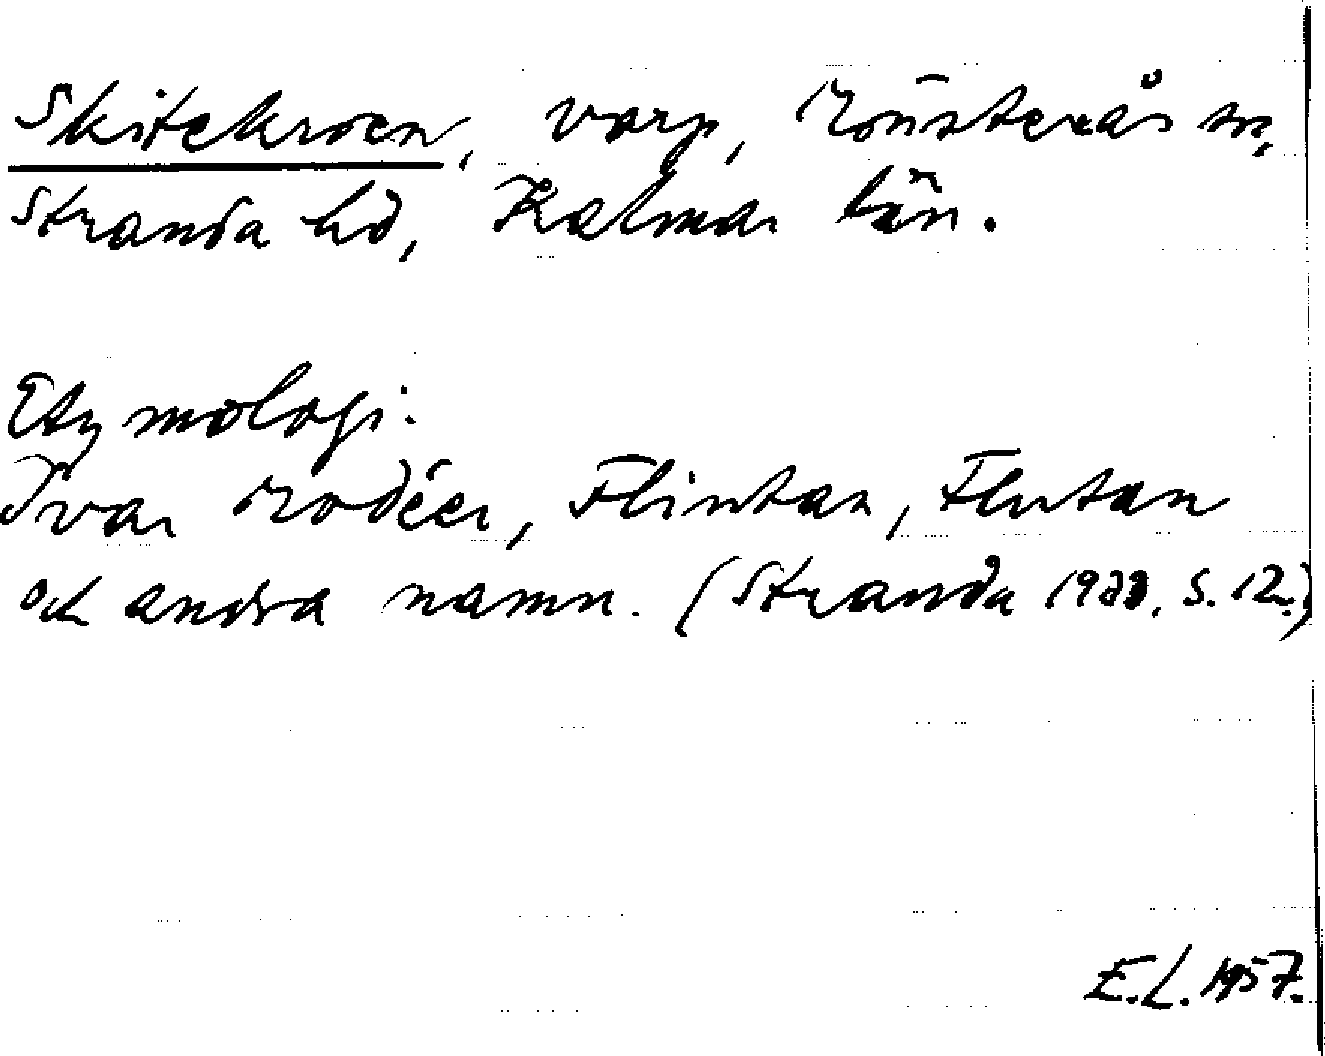 Skitekroen, varp, Mönsterås sn,
Stranda hd, Kalmar län.
Etymologi:
Ivar Modéer, Flintan, Flutan
och andra namn. (Stranda s. 12.)
E.L. 1957.